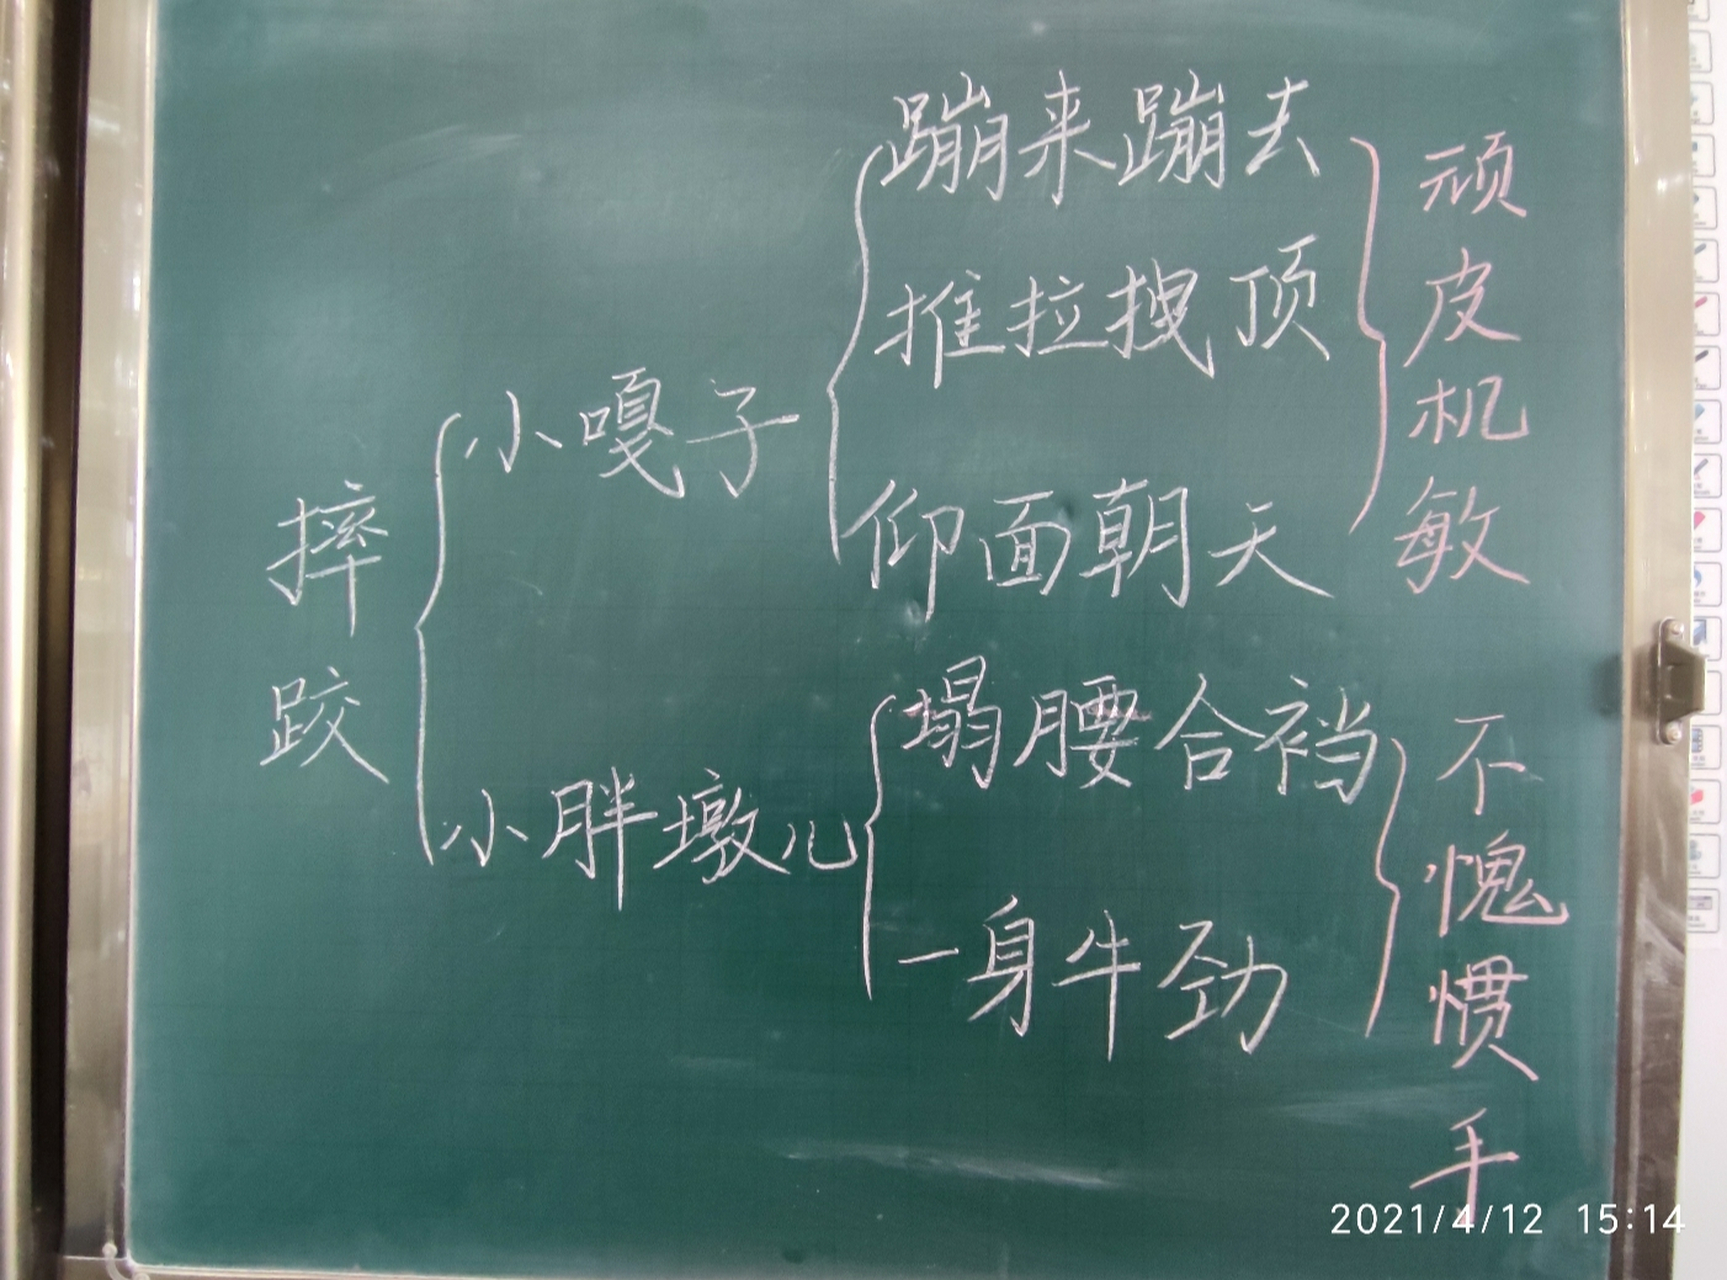 摔跤
小嘎子
蹦来蹦去
推拉拽顶
仰面朝天
顽皮机敏
小胖墩儿
塌腰合裆
一身牛劲
不愧惯手
2021/4/12 15:14